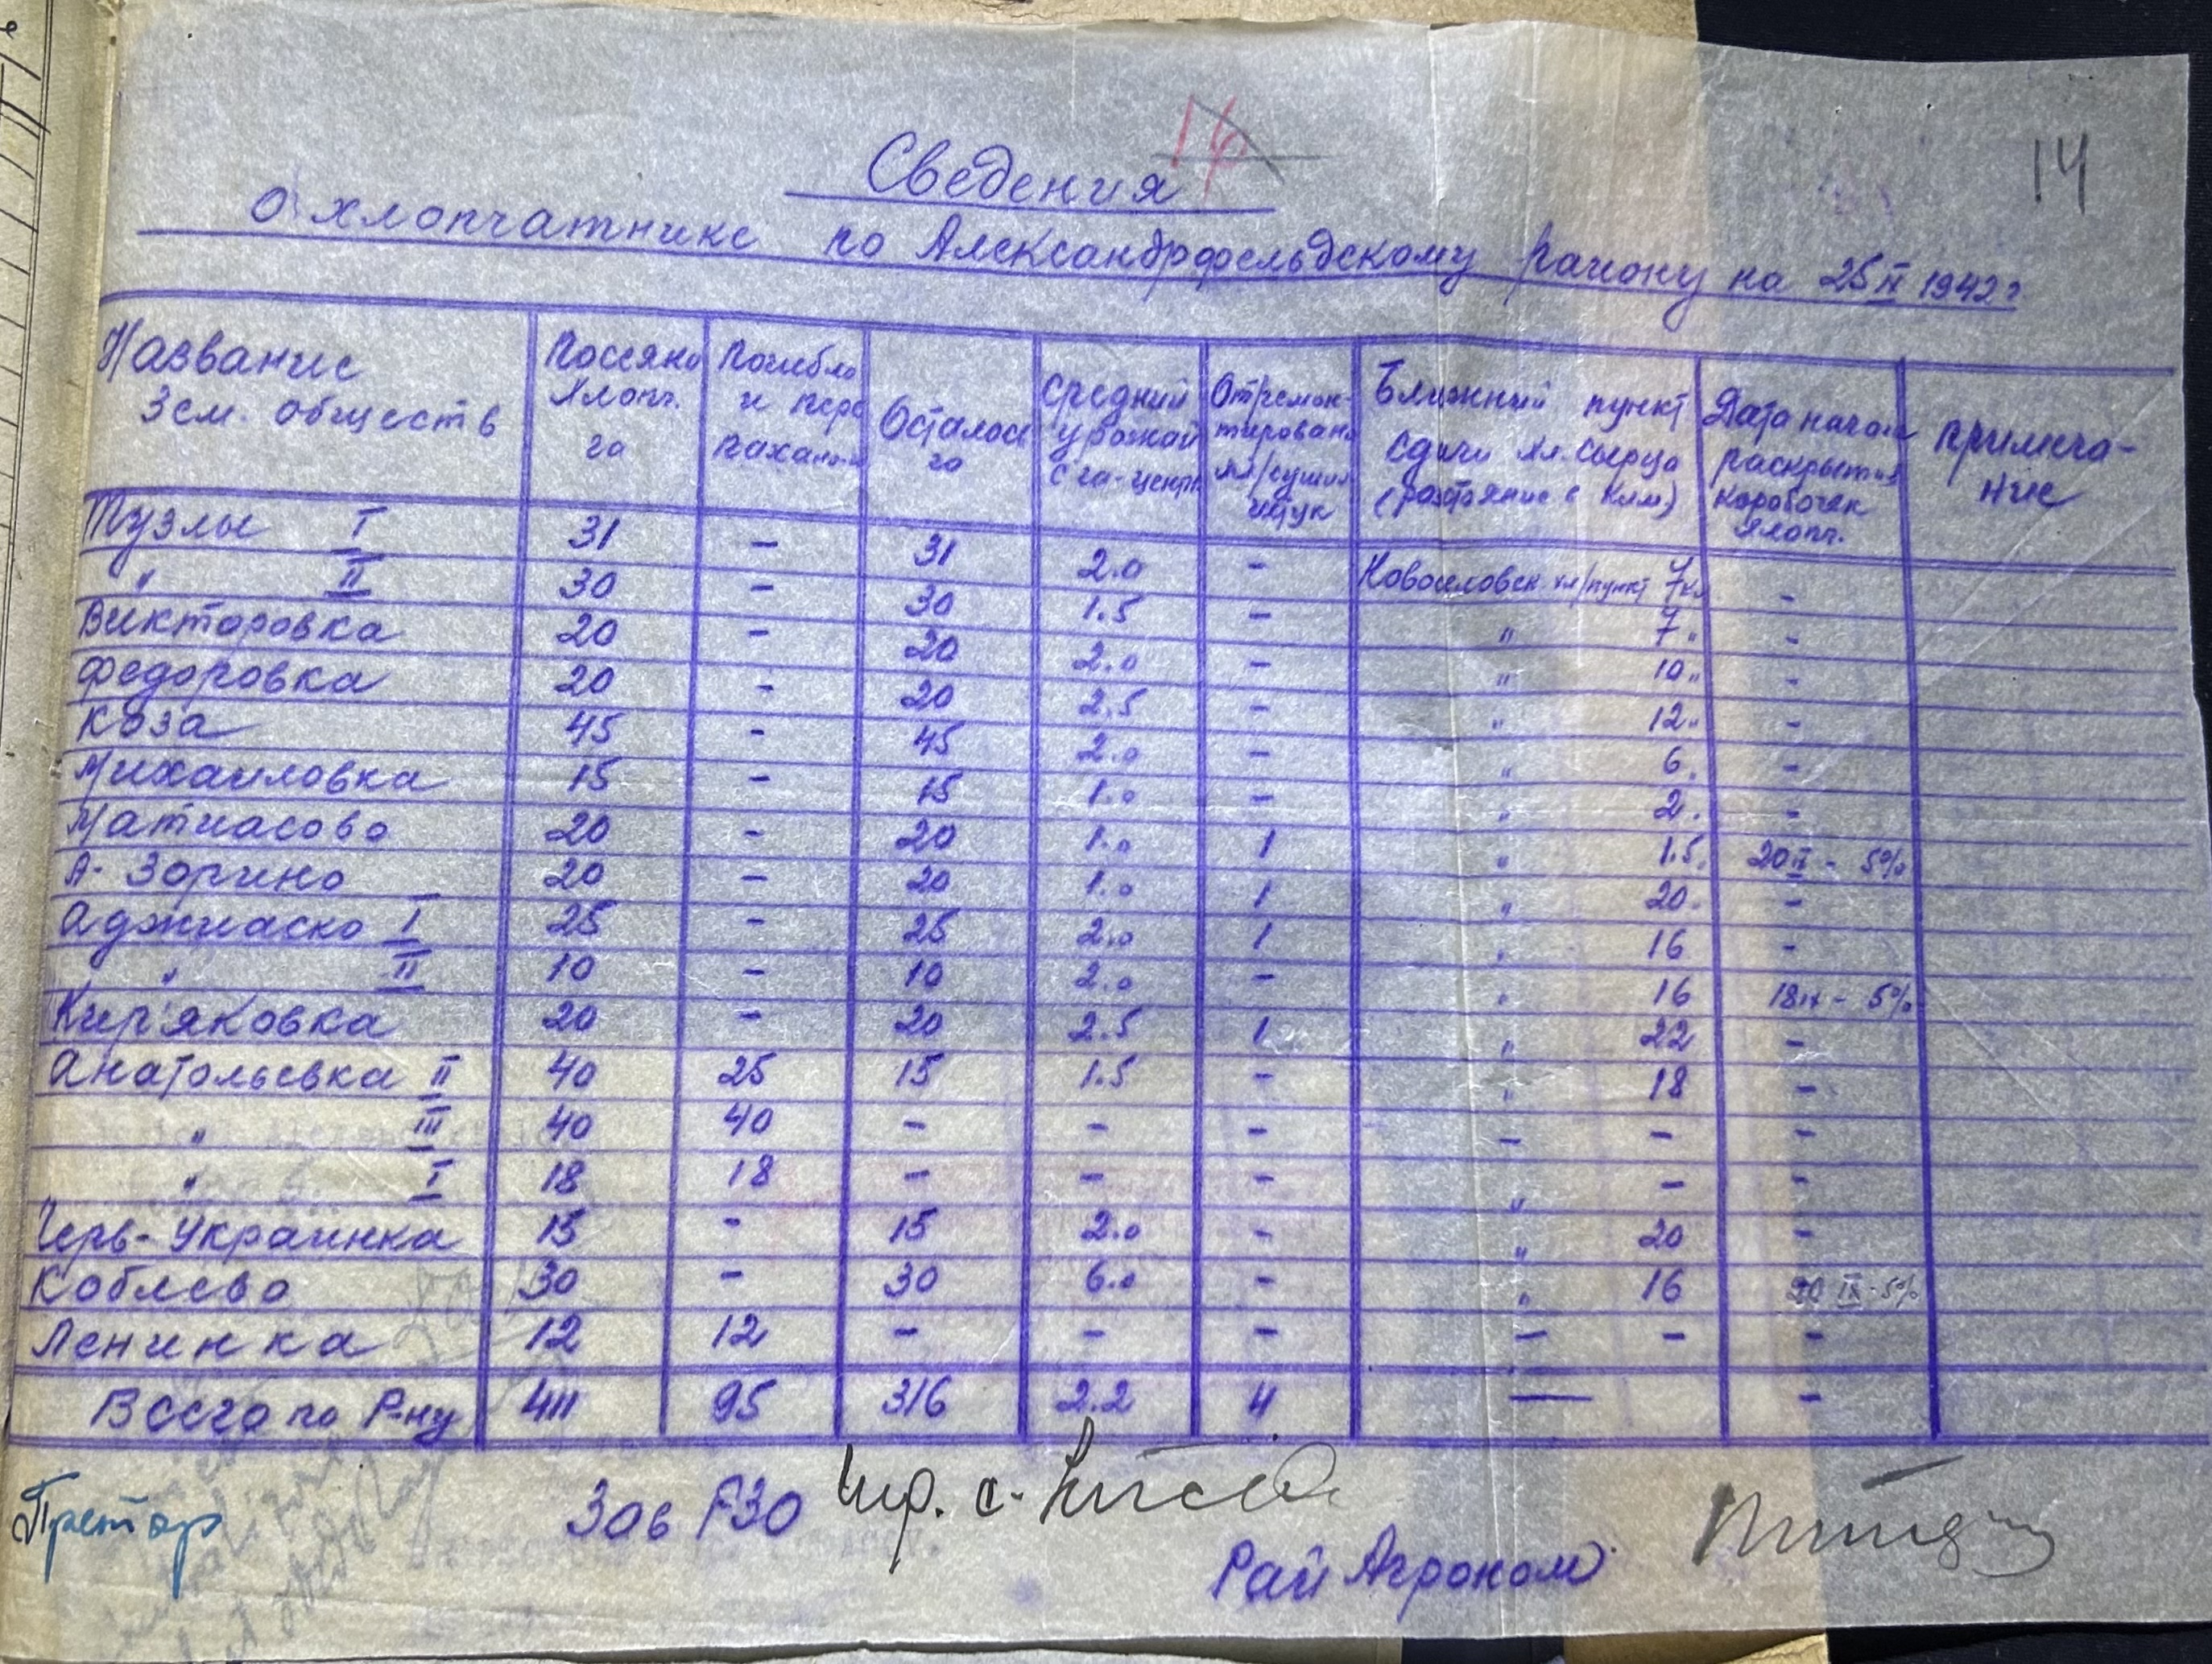 14
Сведения
о хлопчатнике по Александрфельдскому району на 25 IX 1942 г
Название Зем. обществ | Посеяно Хлопч. га | Погибло и пере пахано | Осталось га | Средний урожай с га-центн | Отремон-тировано хл/сушил штук | Ближний пункт сдачи хл. сырца (растояние в клм) | Дата начала раскрытия коробочек хлопч. | примеча-ние
Тузлы I | 31 | - | 31 | 2.0 | - | Новоселовск хл/пункт 7 кл | -
" II | 30 | - | 30 | 1.5 | - | " 7 " | -
Викторовка | 20 | - | 20 | 2.0 | - | " 10 " | -
Федоровка | 20 | - | 20 | 2.5 | - | " 12 " | -
Коза | 45 | - | 45 | 2.0 | - | " 6. | -
Михайловка | 15 | - | 15 | 1.0 | - | " 2. | -
Матиасово | 20 | - | 20 | 1.0 | 1 | " 1.5. | 20 IX - 5%
А- Зорино | 20 | - | 20 | 1.0 | 1 | " 20. | -
Аджиаско I | 25 | - | 25 | 2.0 | 1 | " 16 | -
" II | 10 | - | 10 | 2.0 | - | " 16 | 18 IX - 5%
Кир'яковка | 20 | - | 20 | 2.5 | 1 | " 22 | -
Анатольевка II | 40 | 25 | 15 | 1.5 | - | " 18 | -
" III | 40 | 40 | - | - | - | - - | -
" I | 18 | 18 | - | - | - | " - | -
Черв- Украинка | 15 | - | 15 | 2.0 | - | " 20 | -
Коблево | 30 | - | 30 | 6.0 | - | " 16 | 20 IX - 5%
Ленинка | 12 | 12 | - | - | - | - - | -
Всего по Р-ну | 411 | 95 | 316 | 2.2 | 4 | — | -
Претор
Зав РЗО
Рай Агроном